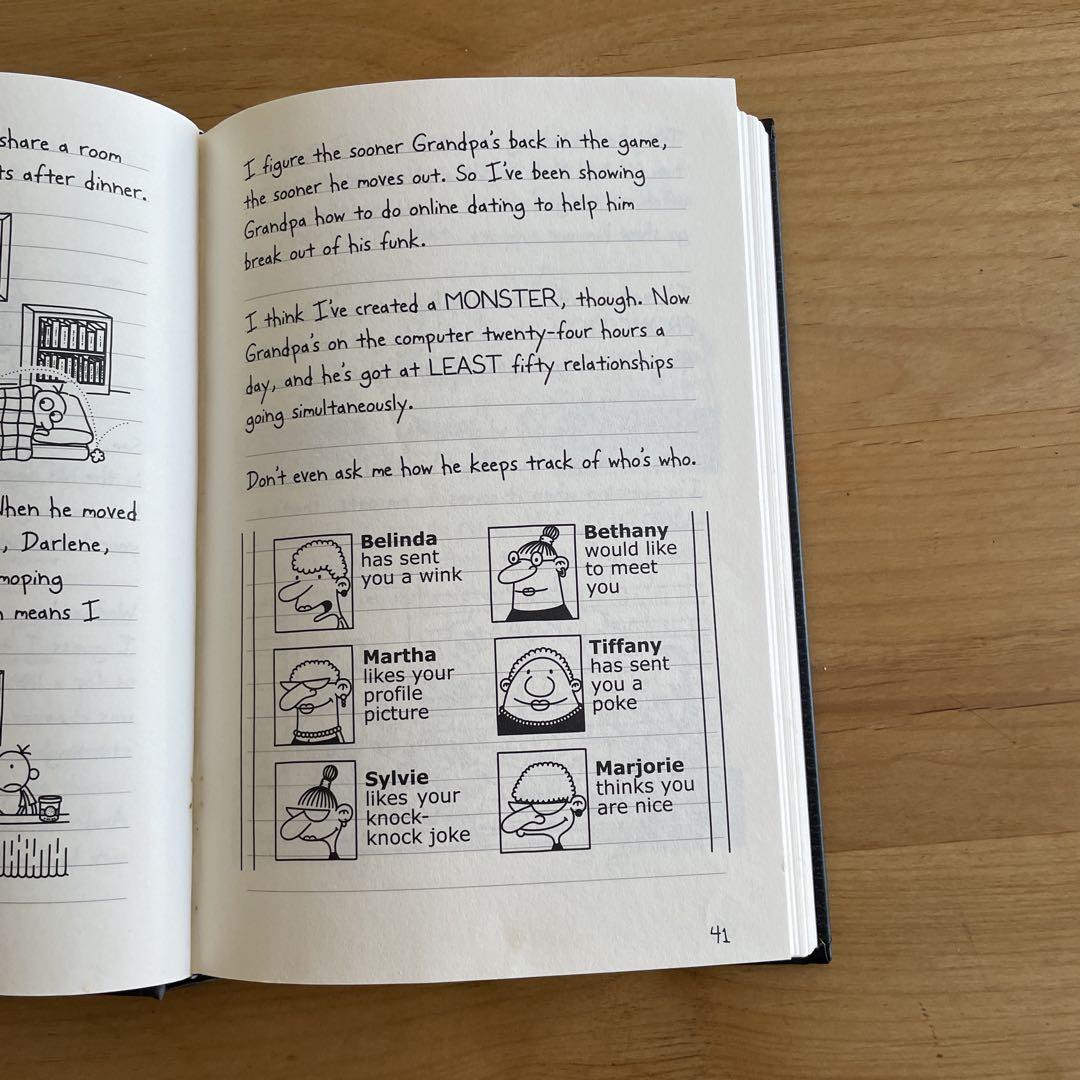 share a room
ts after dinner.
hen he moved
, Darlene,
moping
means I
I figure the sooner Grandpa's back in the game,
the sooner he moves out. So I've been showing
Grandpa how to do online dating to help him
break out of his funk.
I think I've created a MONSTER, though. Now
Grandpa's on the computer twenty-four hours a
day, and he's got at LEAST fifty relationships
going simultaneously.
Don't even ask me how he keeps track of who's who.
Belinda
has sent
you a wink
Bethany
would like
to meet
you
Martha
likes your
profile
picture
Tiffany
has sent
you a
poke
Sylvie
likes your
knock-
knock joke
Marjorie
thinks you
are nice
41